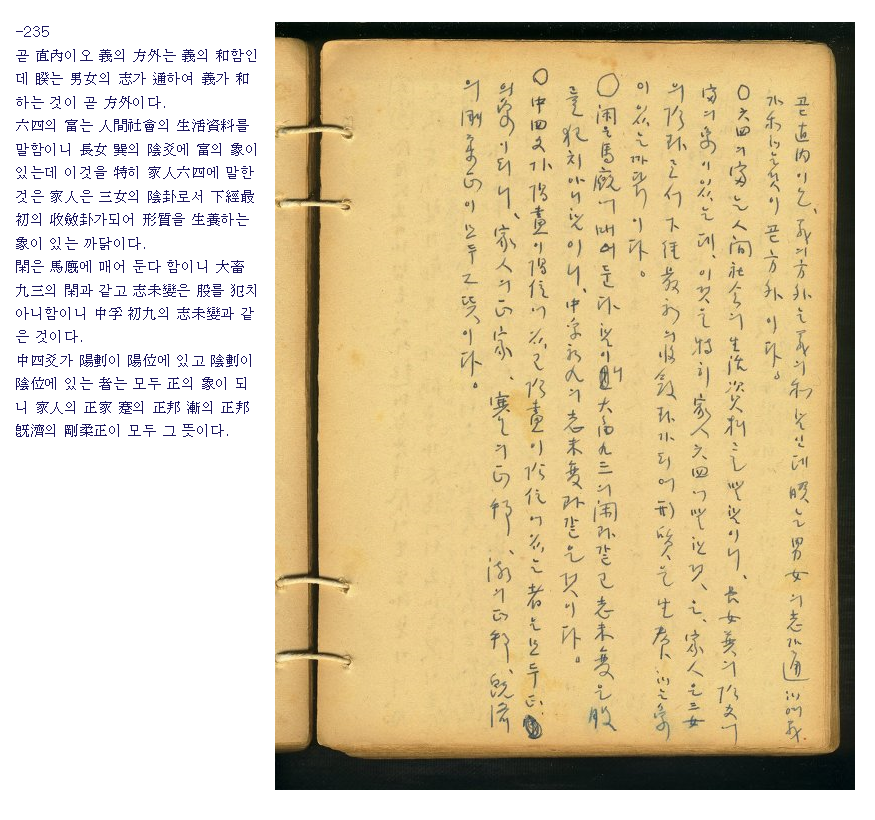 -235
곧 直內이오 義의 方外는 義의 和함인
데 睽는 男女의 志가 通하여 義가 和
하는 것이 곧 方外이다.
六四의 富는 人間社會의 生活資料를
말함이니 長女 巽의 陰爻에 富의 象이
있는데 이것을 特히 家人六四에 말한
것은 家人은 三女의 陰卦로서 下經最
初의 收斂卦가되어 形質을 生養하는
象이 있는 까닭이다.
閑은 馬廐에 매어 둔다 함이니 大畜
九三의 閑과 같고 志未變은 股를 犯치
아니함이니 中孚 初九의 志未變과 같
은 것이다.
中四爻가 陽劃이 陽位에 있고 陰劃이
陰位에 있는 者는 모두 正의 象이 되
니 家人의 正家 蹇의 正邦 漸의 正邦
旣濟의 剛柔正이 모두 그 뜻이다.
곧 直內이오、義의 方外는 義의 和함인데 睽는 男女의 志가 通하여 義
가 和하는 것이 곧 方外이다。
○六四의 富는 人間社會의 生活資料를 말함이니、長女 巽의 陰爻에
富의 象이 있는데、이것을 特히 家人六四에 말한 것은、家人은 三女
의 陰卦로서 下經最初의 收斂卦가 되어 形質을 生養하는 象
이 있는 까닭이다。
○閑은 馬廐에 매어 둔다 함이니 大畜九三의 閑과 같고 志未變은 股
를 犯치 아니함이니、中孚初九의 志未變과 같은 것이다。
○中四爻가 陽畫이 陽位에 있고 陰畫이 陰位에 있는 者는 모두 正
의 象이 되니、家人의 正家、蹇의 正邦、漸의 正邦、旣濟
의 剛柔正이 모두 그 뜻이다。